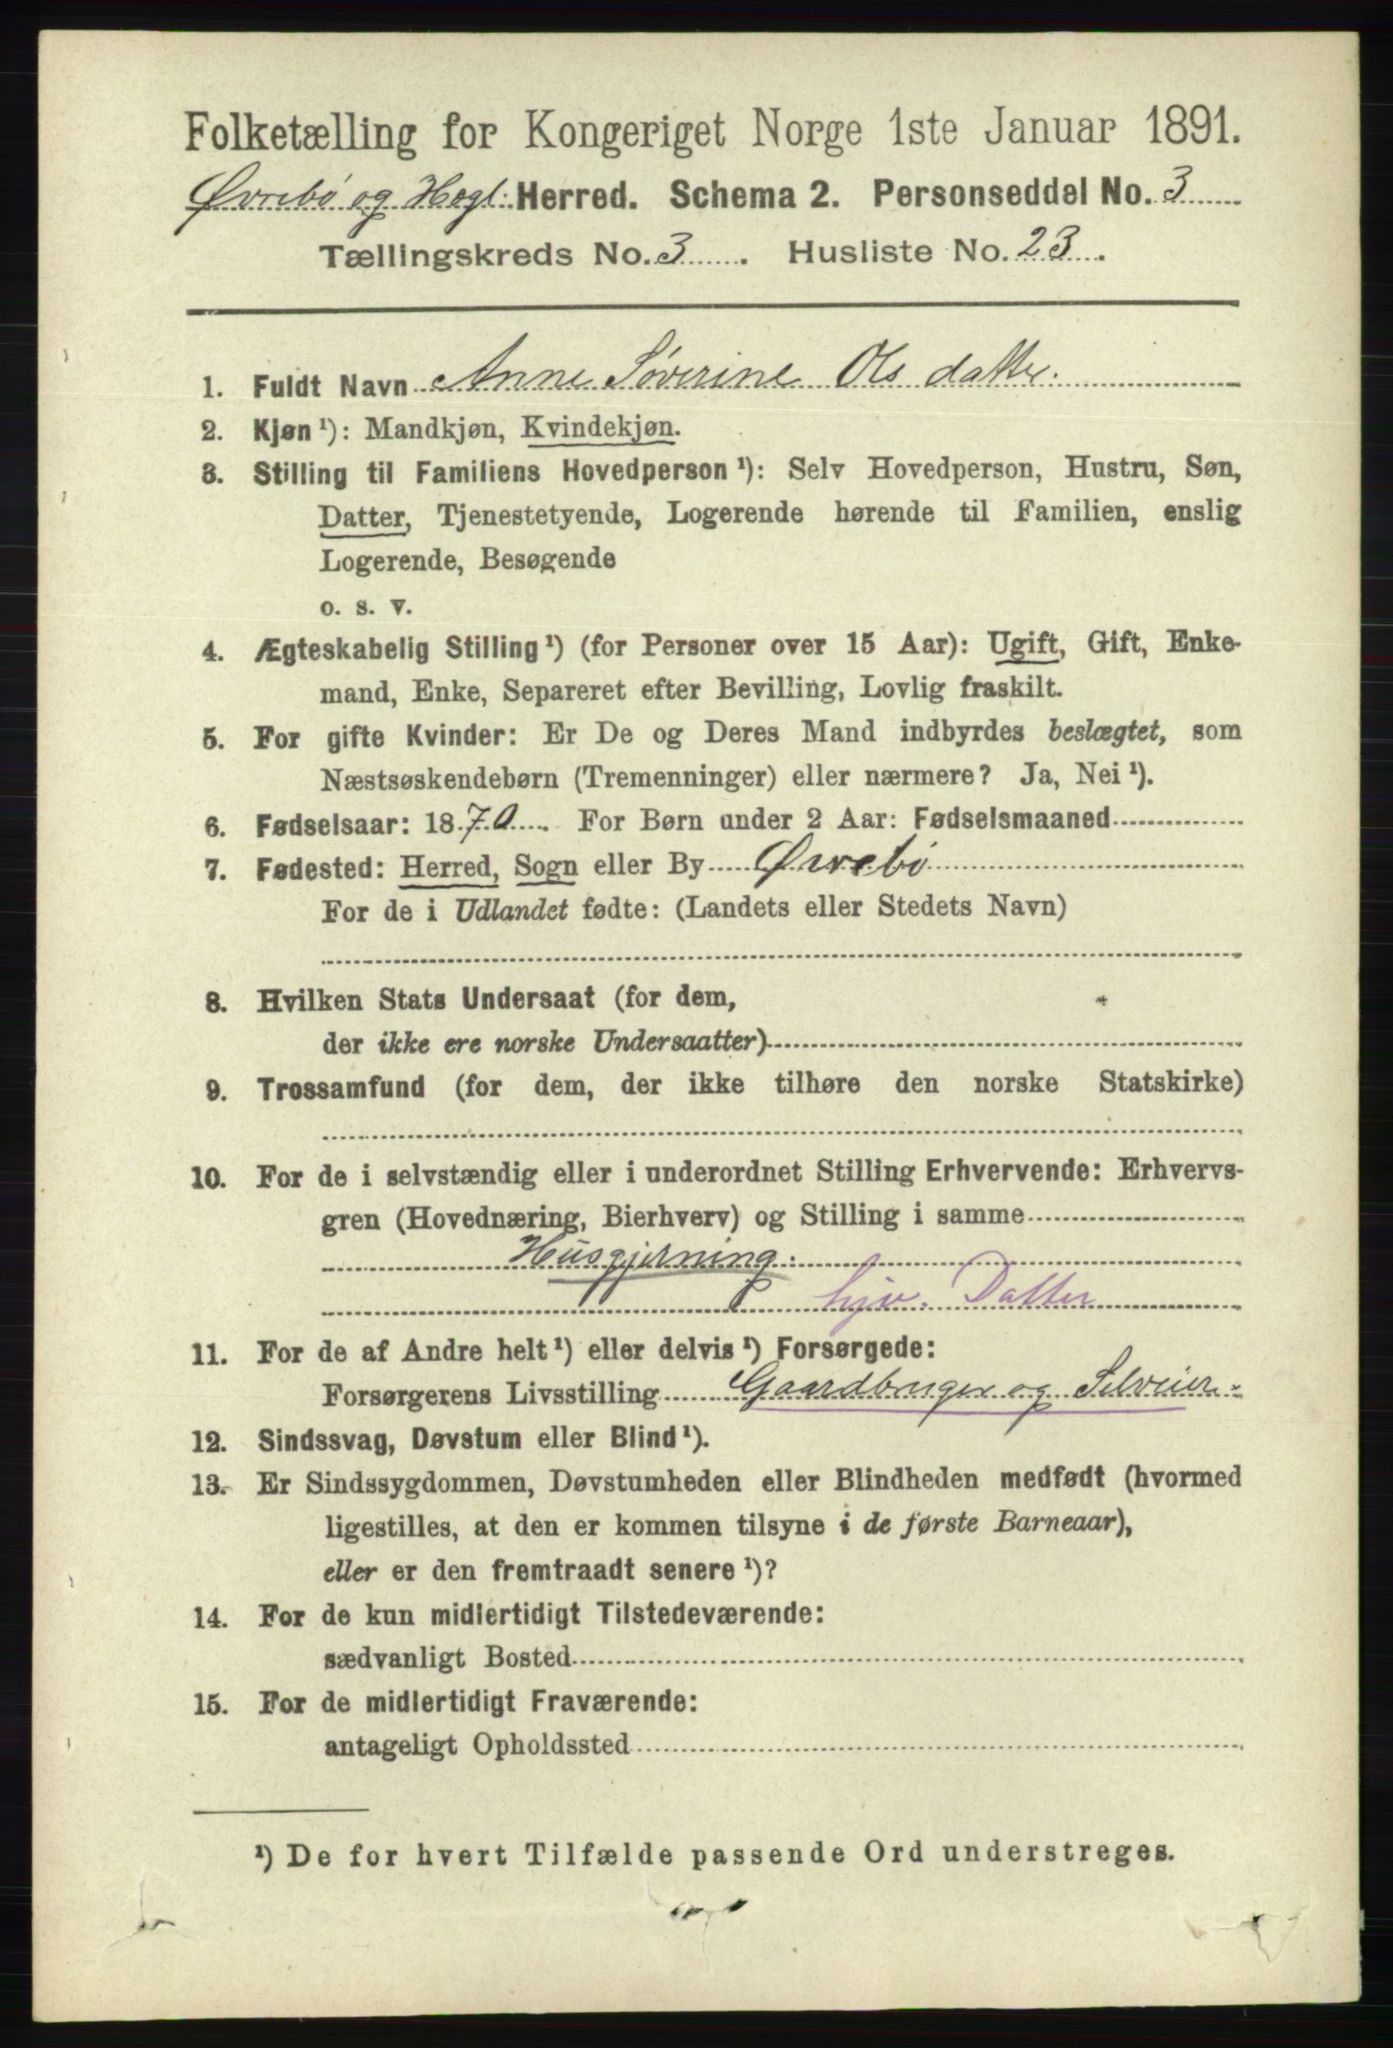 Folketælling for Kongeriget Norge 1ste Januar 1891.
Øvrebø og Hægl: Herred. Schema 2. Personseddel No. 3
Tællingskreds No. 3. Husliste No. 23.
1. Fuldt Navn Anne Søverine Olsdatter.
2. Kjøn ¹): Mandkjøn, Kvindekjøn.
3. Stilling til Familiens Hovedperson ¹): Selv Hovedperson, Hustru, Søn,
Datter, Tjenestetyende, Logerende hørende til Familien, enslig
Logerende, Besøgende
o. s. v.
4. Ægteskabelig Stilling ¹) (for Personer over 15 Aar): Ugift, Gift, Enke-
mand, Enke, Separeret efter Bevilling, Lovlig fraskilt.
5. For gifte Kvinder: Er De og Deres Mand indbyrdes beslægtet, som
Næstsøskendebørn (Tremenninger) eller nærmere? Ja, Nei ¹).
6. Fødselsaar: 1870. For Børn under 2 Aar: Fødselsmaaned
7. Fødested: Herred, Sogn eller By Øvrebø
For de i Udlandet fødte: (Landets eller Stedets Navn)
8. Hvilken Stats Undersaat (for dem,
der ikke ere norske Undersaatter)
9. Trossamfund (for dem, der ikke tilhøre den norske Statskirke)
10. For de i selvstændig eller i underordnet Stilling Erhvervende: Erhvervs-
gren (Hovednæring, Bierhverv) og Stilling i samme
Husgjerning.
hjv. Datter
11. For de af Andre helt ¹) eller delvis ¹) Forsørgede:
Forsørgerens Livsstilling Gaardbruger og Selveier
12. Sindssvag, Døvstum eller Blind ¹).
13. Er Sindssygdommen, Døvstumheden eller Blindheden medfødt (hvormed
ligestilles, at den er kommen tilsyne i de første Barneaar),
eller er den fremtraadt senere ¹)?
14. For de kun midlertidigt Tilstedeværende:
sædvanligt Bosted
15. For de midlertidigt Fraværende:
antageligt Opholdssted
¹) De for hvert Tilfælde passende Ord understreges.